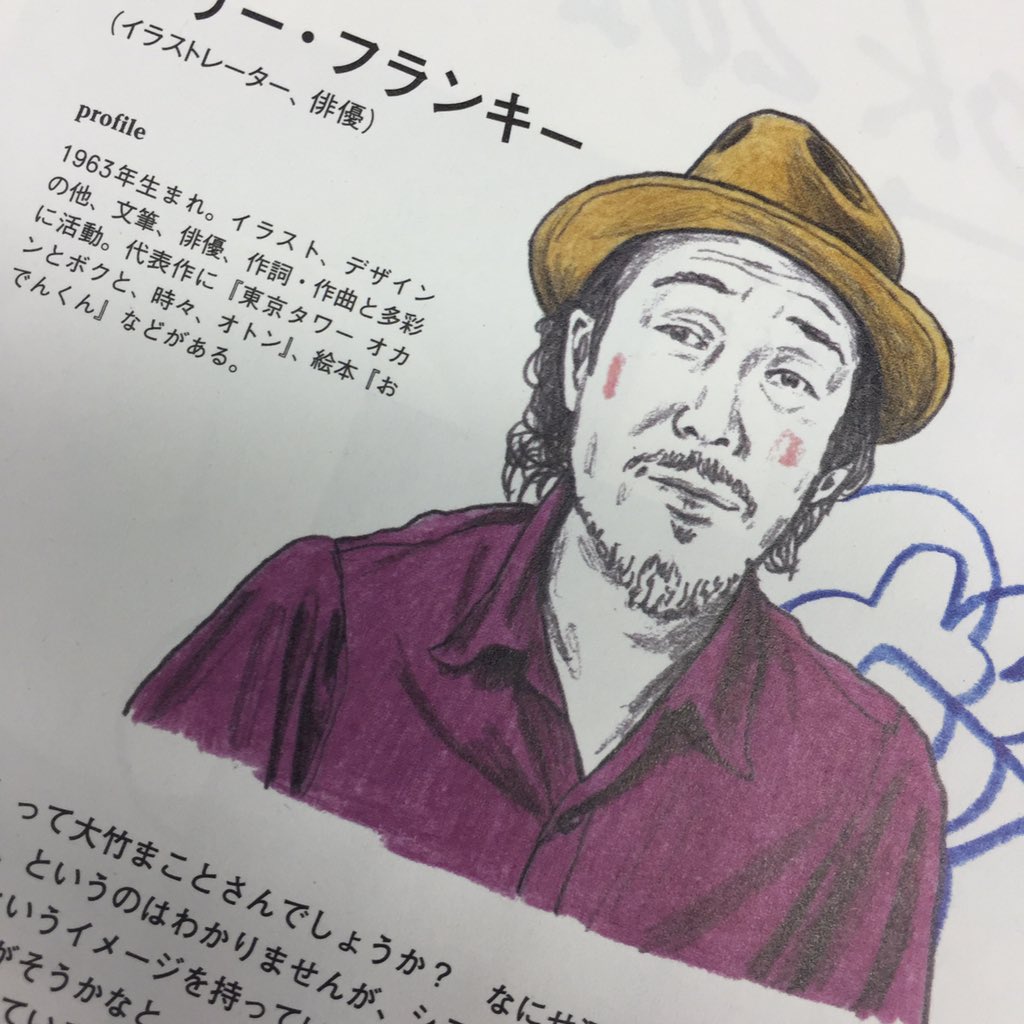 リー・フランキー
(イラストレーター、俳優)
profile
1963年生まれ。イラスト、デザイン
の他、文筆、俳優、作詞・作曲と多彩
に活動。代表作に『東京タワー オカ
ンとボクと、時々、オトン』、絵本『お
でんくん』などがある。
って大竹まことさんでしょうか？ なにせ
、というのはわかりませんが、シ
いうイメージを持って
がそうかなと
てい